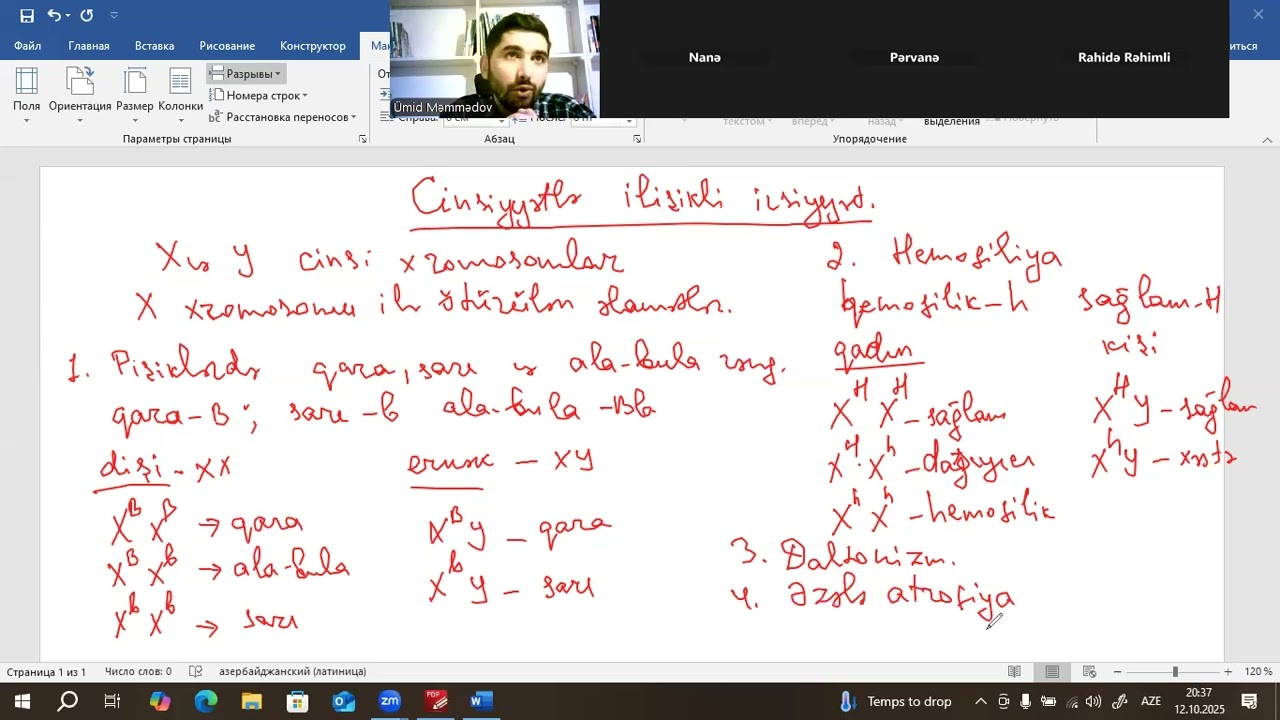 Файл Главная Вставка Рисование Конструктор
Nanə Pərvanə Rahidə Rəhimli
Ümid Məmmədov
Поля Ориентация Размер Колонки
Разрывы
Номера строк
Расстановка переносов
Параметры страницы Абзац Упорядочение
выделения
Cinsiyyətlə ilişikli irsiyyət.
X və Y cinsi xromosomlar
X xromosomu ilə ötürülən əlamətlər.
1. Pişiklərdə qara, sarı və ala-bula rəng.
qara-B; sarı-b ala-bula-Bb
dişi - XX erkək - XY
X^B X^B → qara X^B Y - qara
X^B X^b → ala-bula X^b Y - sarı
X^b X^b → sarı
2. Hemofiliya
hemofilik-h sağlam-H
qadın kişi
X^H X^H - sağlam X^H Y - sağlam
X^H X^h - daşıyıcı X^h Y - xəstə
X^h X^h - hemofilik
3. Daltonizm.
4. Əzələ atrofiya
Страница 1 из 1 Число слов: 0 азербайджанский (латиница) 120 %
Temps to drop AZE 20:37
12.10.2025